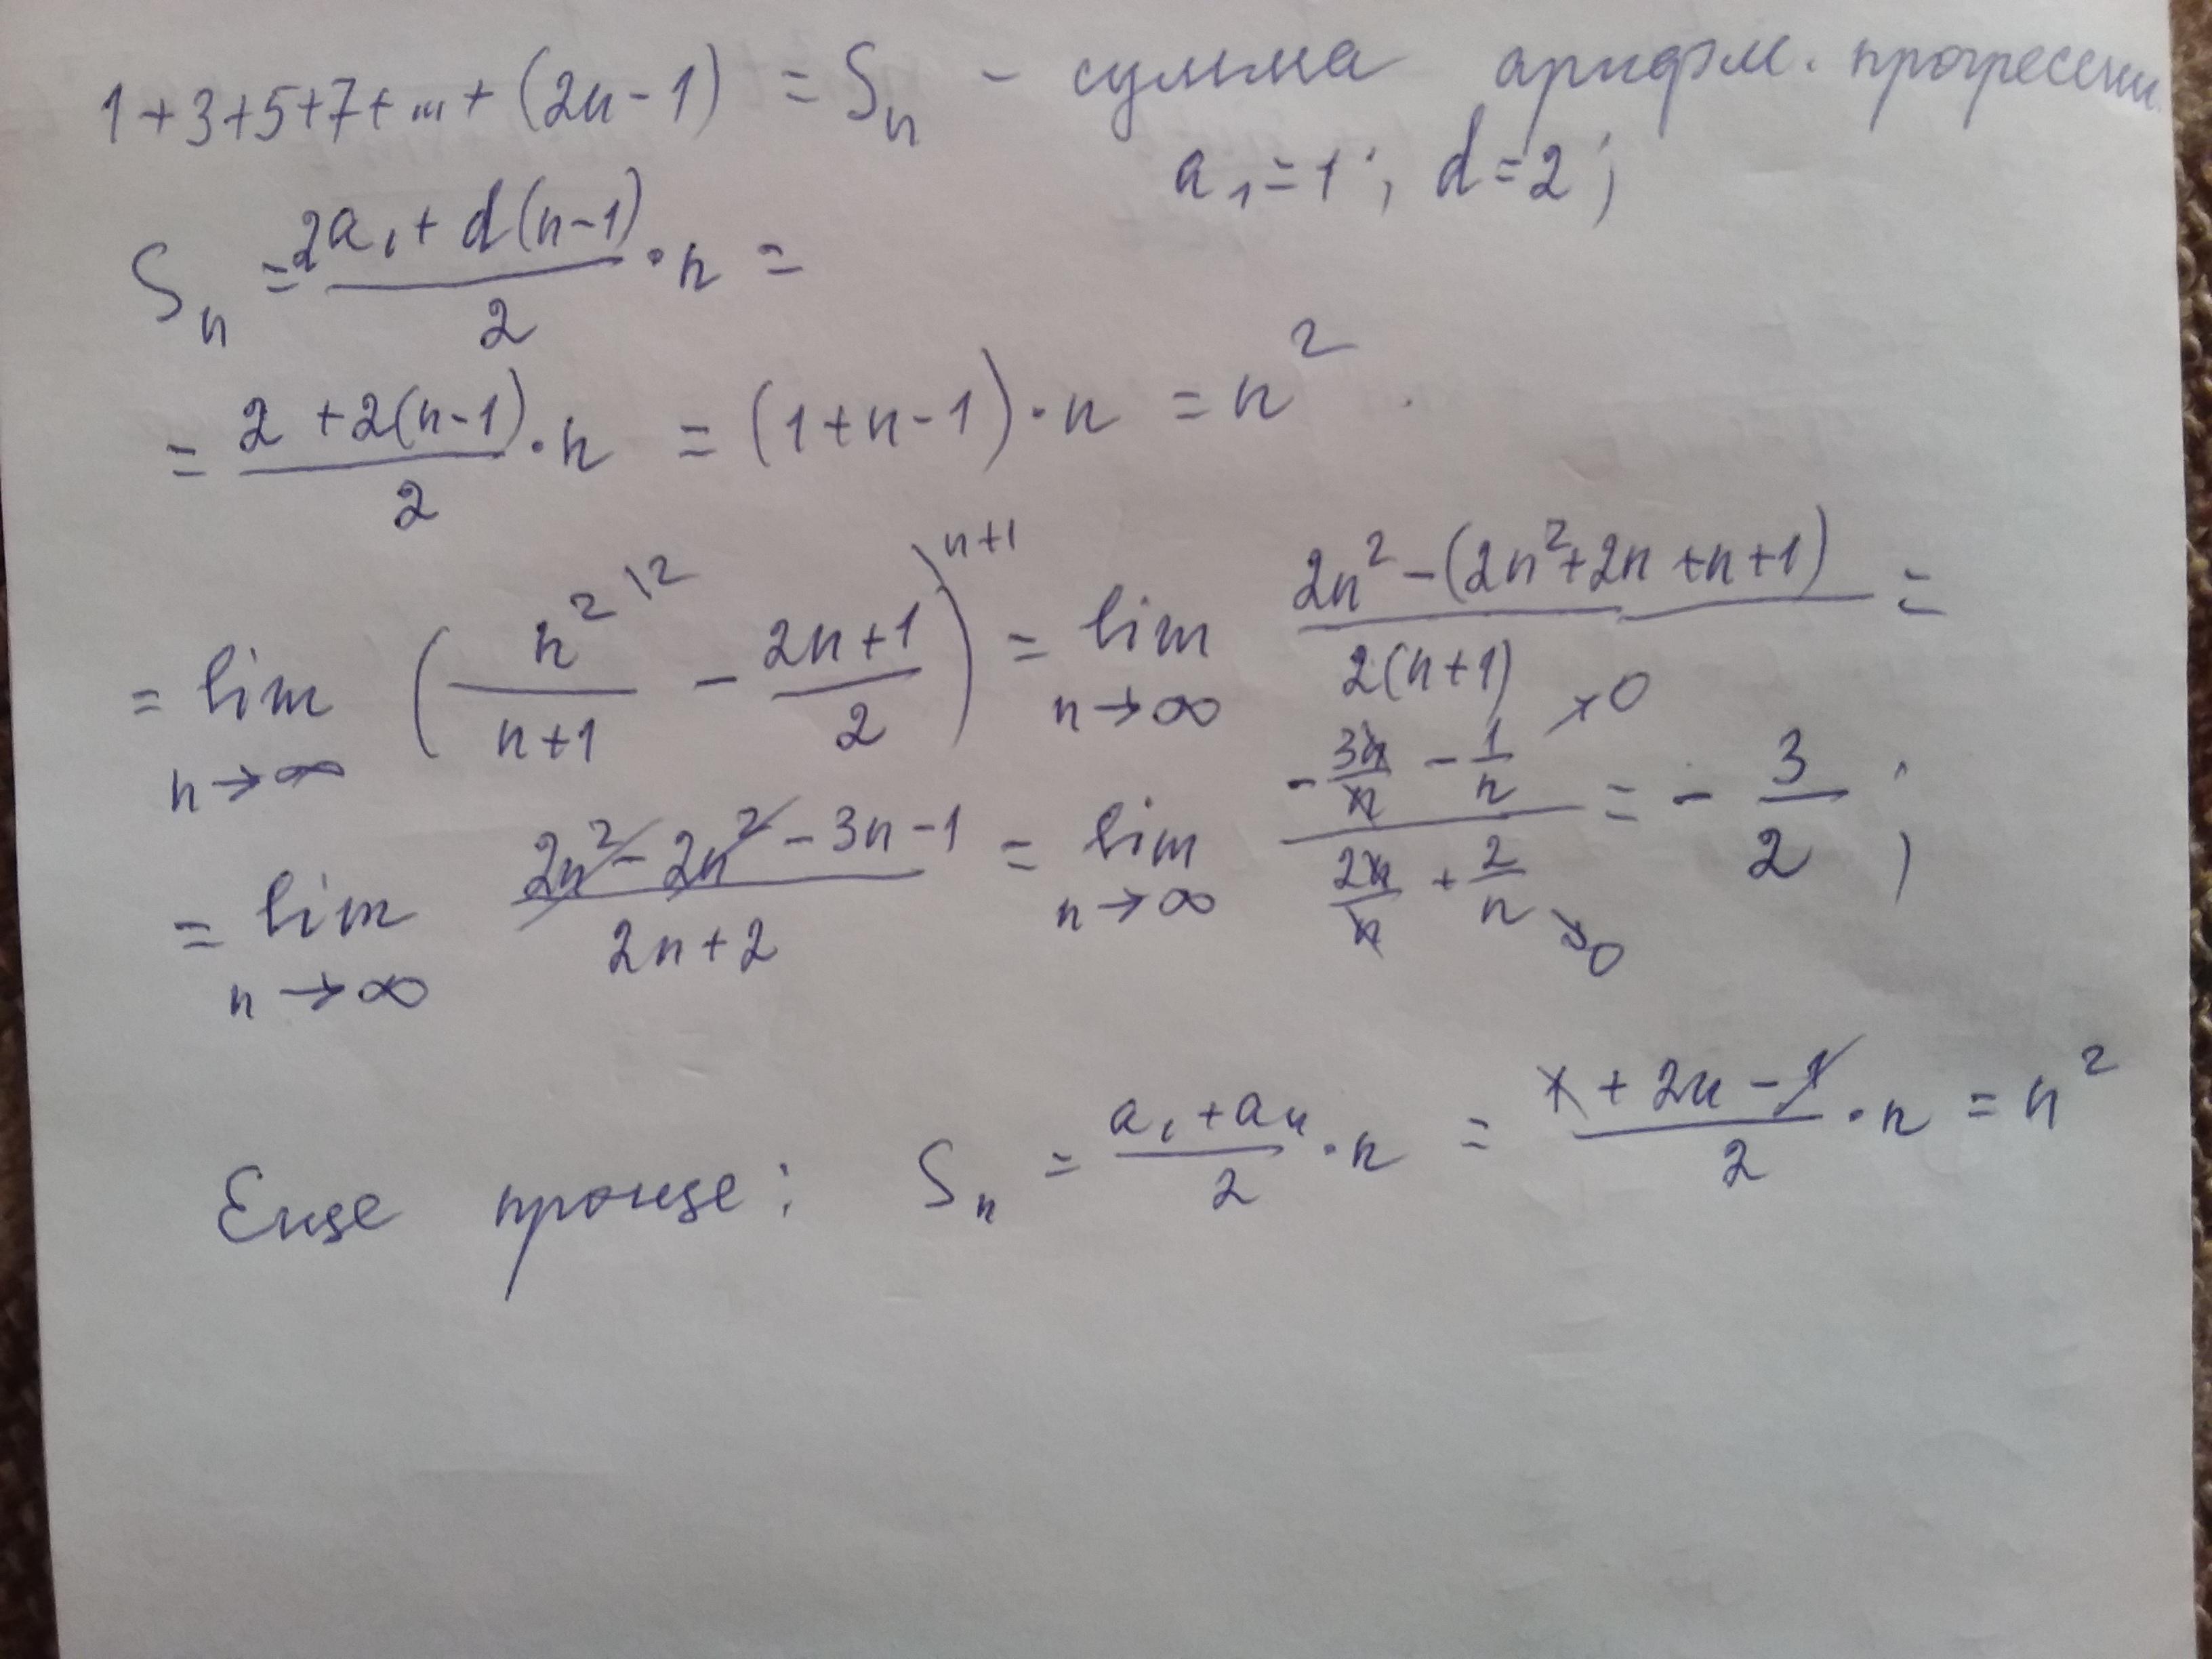 1+3+5+7+...+(2n-1) = Sₙ - сумма арифм. прогрессии.
a₁=1; d=2;
Sₙ = (2a₁+d(n-1))/2 · n =
= (2+2(n-1))/2 · n = (1+n-1)·n = n².
= lim n→∞ (n² \2/(n+1) - (2n+1)/2 \n+1) = lim n→∞ (2n²-(2n²+2n+n+1))/(2(n+1)) =
= lim n→∞ (2n²-2n²-3n-1)/(2n+2) = lim n→∞ (-3n/n - 1/n →0)/(2n/n + 2/n →0) = -3/2;
Еще проще: Sₙ = (a₁+aₙ)/2 · n = (1+2n-1)/2 · n = n²